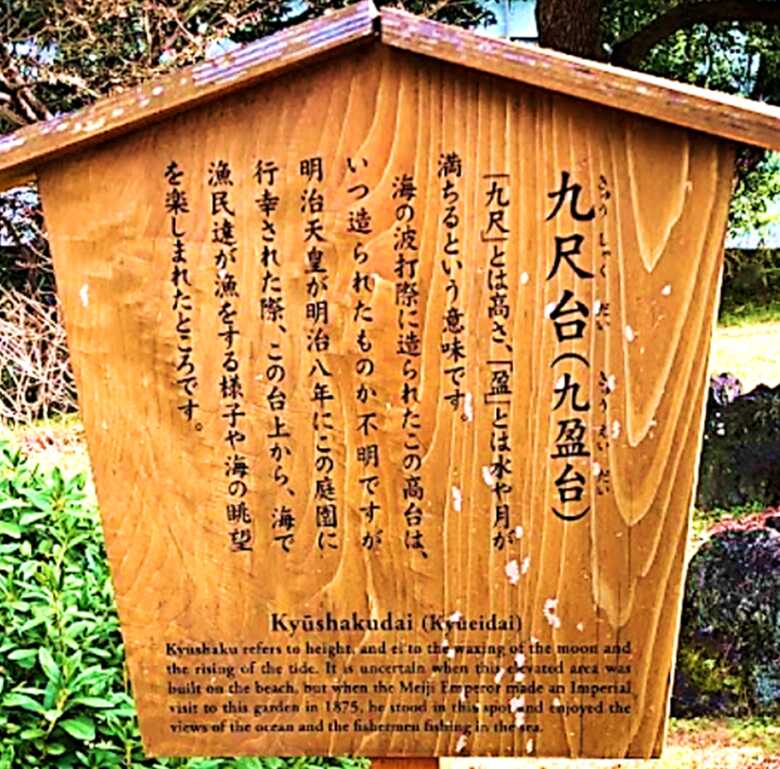 九尺台（九盈台）
きゅうしゃくだい　きゅうえいだい
「九尺」とは高さ、「盈」とは水や月が
満ちるという意味です。
海の波打際に造られたこの高台は、
いつ造られたものか不明ですが
明治天皇が明治八年にこの庭園に
行幸された際、この台上から、海で
漁民達が漁をする様子や海の眺望
を楽しまれたところです。
Kyūshakudai (Kyūeidai)
Kyūshaku refers to height, and ei to the waxing of the moon and
the rising of the tide. It is uncertain when this elevated area was
built on the beach, but when the Meiji Emperor made an Imperial
visit to this garden in 1875, he stood in this spot and enjoyed the
views of the ocean and the fishermen fishing in the sea.